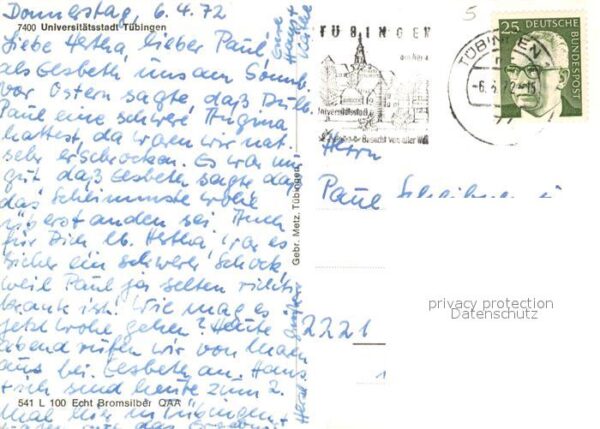 Donnerstag, 6.4.72
7400 Universitätsstadt Tübingen
Liebe Hertha, lieber Paul,
als Lisbeth uns am Sonnt.
vor Ostern sagte, daß Du lb.
Paul eine schwere Angina
hattest, da waren wir nat.
sehr erschrocken. Es war nur
gut daß Lisbeth sagte daß
das Schlimmste wohl
überstanden sei. Auch
für Dich lb. Hertha war es
sicher ein schwerer Schock
weil Paul ja selten richtig
krank ist. Wie mag es
jetzt wohl gehen? Heute
abend rufen wir von Mann
aus bei Lisbeth an. Hans
+ ich sind heute zum 2.
Mal hier in Tübingen +
541 L 100 Echt Bromsilber QAA
Gebr. Metz, Tübingen
Herzl. Grüßen
eure
Hans +
TÜBINGEN
Universitätsstadt
TÜBINGEN
-6.4.72-15
25
DEUTSCHE
BUNDESPOST
5
Herrn
Paul
2221
privacy protection
Datenschutz